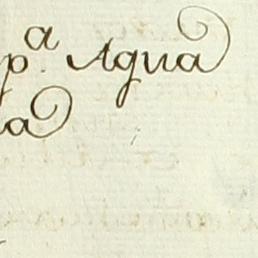 pª Agua
a